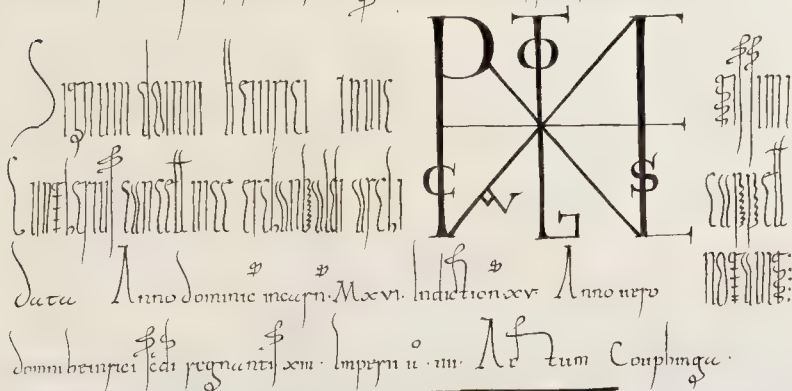 Signum domni Heinrici Inuic tissimi
cancell uice erchanbaldi archi cappell
Data Anno dominic incarn. Mxvi. Indiction xv. Anno uero
domni heinrici scdi regnantis xiii. Imperii ů. iiii. Actum Couphinga.